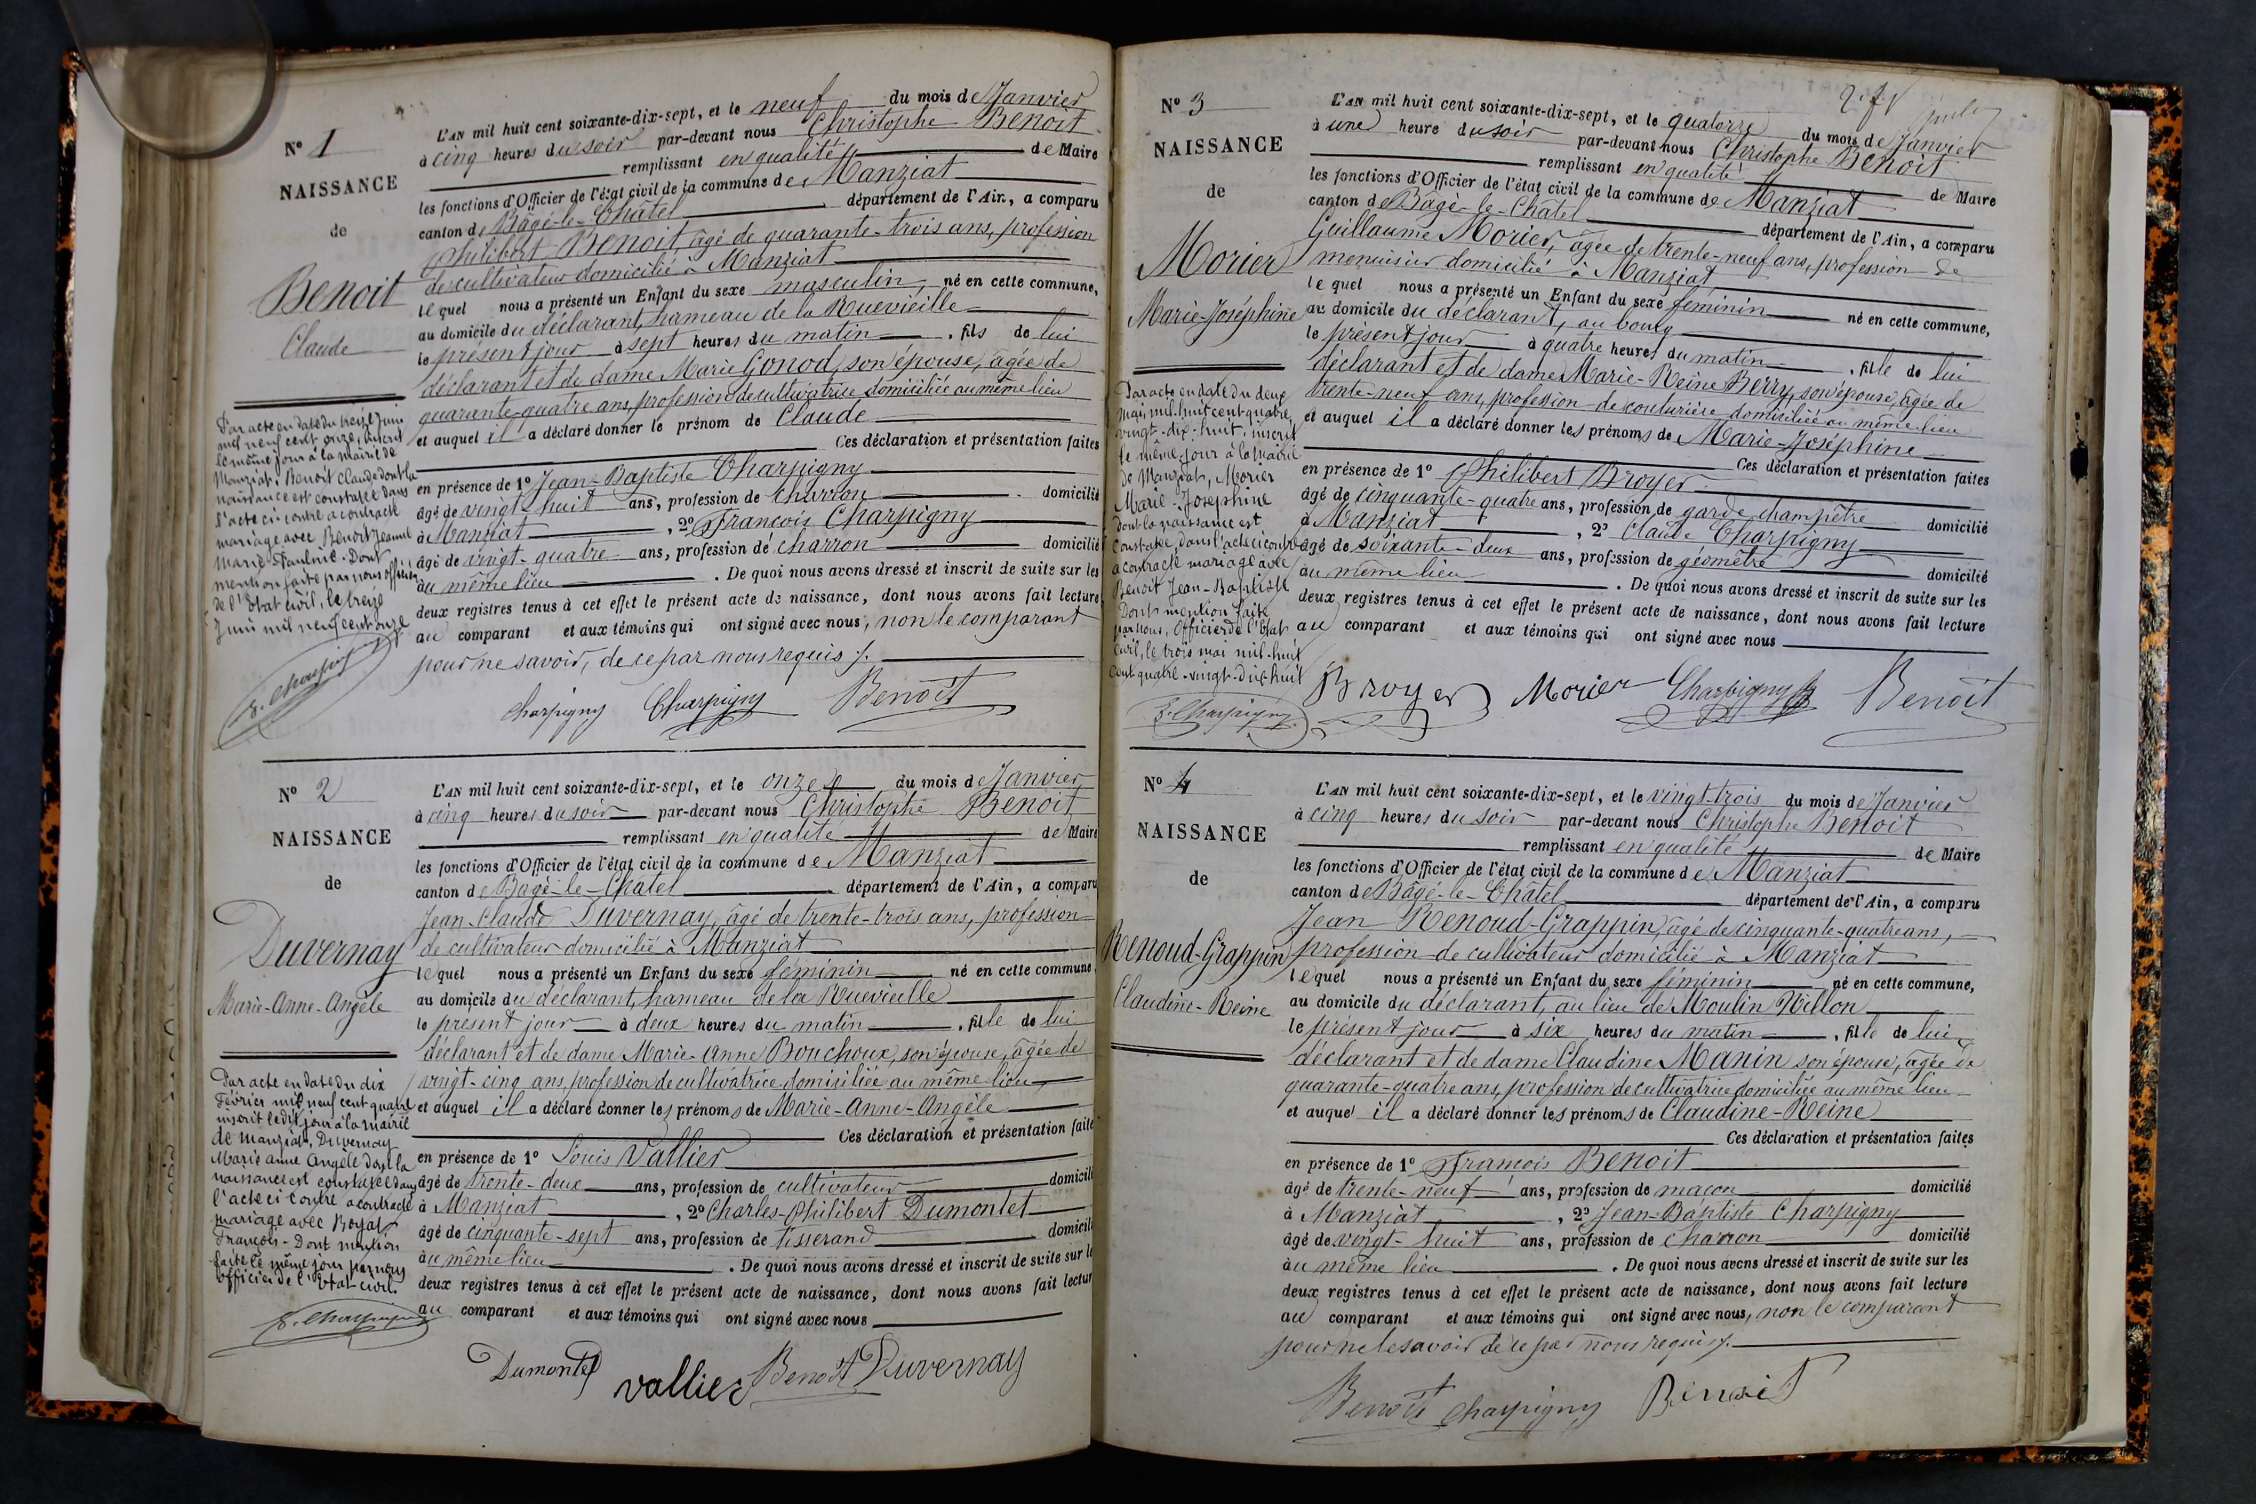 Nº 1
NAISSANCE
de
Benoit
Claude
Par acte en date du treize Juin
mil neuf cent onze, inscrit
le même jour à la mairie de
Manziat, Benoit Claude dont la
naissance est constatée dans
l'acte ci-contre a contracté
mariage avec Benoit Jeanne
Marie-Pauline. Dont
mention faite par nous officier
de l'Etat civil, le treize
Juin mil neuf cent onze
L'AN mil huit cent soixante-dix-sept, et le neuf du mois de Janvier
à cinq heures du soir par-devant nous Christophe Benoit
remplissant en qualité de Maire
les fonctions d'Officier de l'état civil de la commune de Manziat
canton de Bâgé-le-Châtel département de l'Ain, a comparu
Philibert Benoit, âgé de quarante-trois ans, profession
de cultivateur domicilié à Manziat
lequel nous a présenté un Enfant du sexe masculin, né en cette commune,
au domicile du déclarant, hameau de la Ruevieille
le présent jour à sept heures du matin, fils de lui
déclarant et de dame Marie Gonod, son épouse, âgée de
quarante-quatre ans, profession de cultivatrice domiciliée au même lieu
et auquel il a déclaré donner le prénom de Claude
Ces déclaration et présentation faites
en présence de 1º Jean-Baptiste Charpigny
âgé de vingt-huit ans, profession de charron domicilié
à Manziat, 2º François Charpigny
âgé de vingt-quatre ans, profession de charron domicilié
au même lieu. De quoi nous avons dressé et inscrit de suite sur les
deux registres tenus à cet effet le présent acte de naissance, dont nous avons fait lecture
au comparant et aux témoins qui ont signé avec nous, non le comparant
pour ne savoir, de ce par nous requis ./.
Charpigny Charpigny Benoît
Nº 2
NAISSANCE
de
Duvernay
Marie-Anne-Angèle
Par acte en date du dix
Février mil neuf cent quatre
inscrit ledit jour à la mairie
de Manziat, Duvernay
Marie anne Angèle dont la
naissance est constatée dans
l'acte ci contre a contracté
mariage avec Boyat
François - Dont mention
faite le même jour par nous
officier de l'Etat-civil
L'AN mil huit cent soixante-dix-sept, et le onze du mois de Janvier
à cinq heures du soir par-devant nous Christophe Benoit
remplissant en qualité de Maire
les fonctions d'Officier de l'état civil de la commune de Manziat
canton de Bâgé-le-Châtel département de l'Ain, a comparu
Jean-Claude Duvernay, âgé de trente-trois ans, profession
de cultivateur domicilié à Manziat
lequel nous a présenté un Enfant du sexe féminin né en cette commune,
au domicile du déclarant, hameau de la Ruevieille
le présent jour à deux heures du matin, fille de lui
déclarant et de dame Marie-Anne Bouchoux, son épouse, âgée de
vingt-cinq ans, profession de cultivatrice domiciliée au même lieu
et auquel il a déclaré donner les prénoms de Marie-Anne-Angèle
Ces déclaration et présentation faites
en présence de 1º Louis Vallier
âgé de trente-deux ans, profession de cultivateur domicilié
à Manziat, 2º Charles-Philibert Dumontet
âgé de cinquante-sept ans, profession de tisserand domicilié
au même lieu. De quoi nous avons dressé et inscrit de suite sur les
deux registres tenus à cet effet le présent acte de naissance, dont nous avons fait lecture
au comparant et aux témoins qui ont signé avec nous
Dumontet vallier Benoît Duvernay
Nº 3
NAISSANCE
de
Morier
Marie-Joséphine
Par acte en date du deux
mai, mil-huit cent quatre,
vingt-dix-huit, inscrit
le même jour à la mairie
de Manziat, Morier
Marie-Josephine
dont la naissance est
constatée, dans l'acte ci contre
a contracté mariage avec
Benoit Jean-Baptiste
Dont mention faite
par nous, Officier de l'Etat
civil, le trois mai mil-huit
cent quatre-vingt-dix-huit
L'AN mil huit cent soixante-dix-sept, et le quatorze du mois de Janvier
à une heure du soir par-devant nous Christophe Benoit
remplissant en qualité de Maire
les fonctions d'Officier de l'état civil de la commune de Manziat
canton de Bâgé-le-Châtel département de l'Ain, a comparu
Guillaume Morier, âgée de trente-neuf ans, profession de
menuisier domicilié à Manziat
lequel nous a présenté un Enfant du sexe féminin né en cette commune,
au domicile du déclarant, au bourg
le présent jour à quatre heures du matin, fille de lui
déclarant et de dame Marie-Reine Berry, son épouse, âgée de
trente-neuf ans, profession de couturière domiciliée au même lieu
et auquel il a déclaré donner les prénoms de Marie-Joséphine
Ces déclaration et présentation faites
en présence de 1º Philibert Broyer
âgé de cinquante-quatre ans, profession de garde champêtre domicilié
à Manziat, 2º Claude Charpigny
âgé de soixante-deux ans, profession de géomètre domicilié
au même lieu. De quoi nous avons dressé et inscrit de suite sur les
deux registres tenus à cet effet le présent acte de naissance, dont nous avons fait lecture
au comparant et aux témoins qui ont signé avec nous
Broyer Morier Charpigny Benoît
Nº 4
NAISSANCE
de
Renoud-Grappin
Claudine-Reine
L'AN mil huit cent soixante-dix-sept, et le vingt-trois du mois de Janvier
à cinq heures du soir par-devant nous Christophe Benoit
remplissant en qualité de Maire
les fonctions d'Officier de l'état civil de la commune de Manziat
canton de Bâgé-le-Châtel département de l'Ain, a comparu
Jean Renoud-Grappin, âgé de cinquante-quatre ans,
profession de cultivateur domicilié à Manziat
lequel nous a présenté un Enfant du sexe féminin né en cette commune,
au domicile du déclarant, au lieu de Moulin Nillon
le présent jour à six heures du matin, fille de lui
déclarant et de dame Claudine Manin son épouse, âgée de
quarante-quatre ans, profession de cultivatrice domiciliée au même lieu
et auquel il a déclaré donner les prénoms de Claudine-Reine
Ces déclaration et présentation faites
en présence de 1º François Benoit
âgé de trente-neuf ans, profession de maçon domicilié
à Manziat, 2º Jean-Baptiste Charpigny
âgé de vingt-huit ans, profession de charron domicilié
au même lieu. De quoi nous avons dressé et inscrit de suite sur les
deux registres tenus à cet effet le présent acte de naissance, dont nous avons fait lecture
au comparant et aux témoins qui ont signé avec nous, non le comparant
pour ne le savoir de ce par nous requis ./.
Benoît Charpigny Benoit